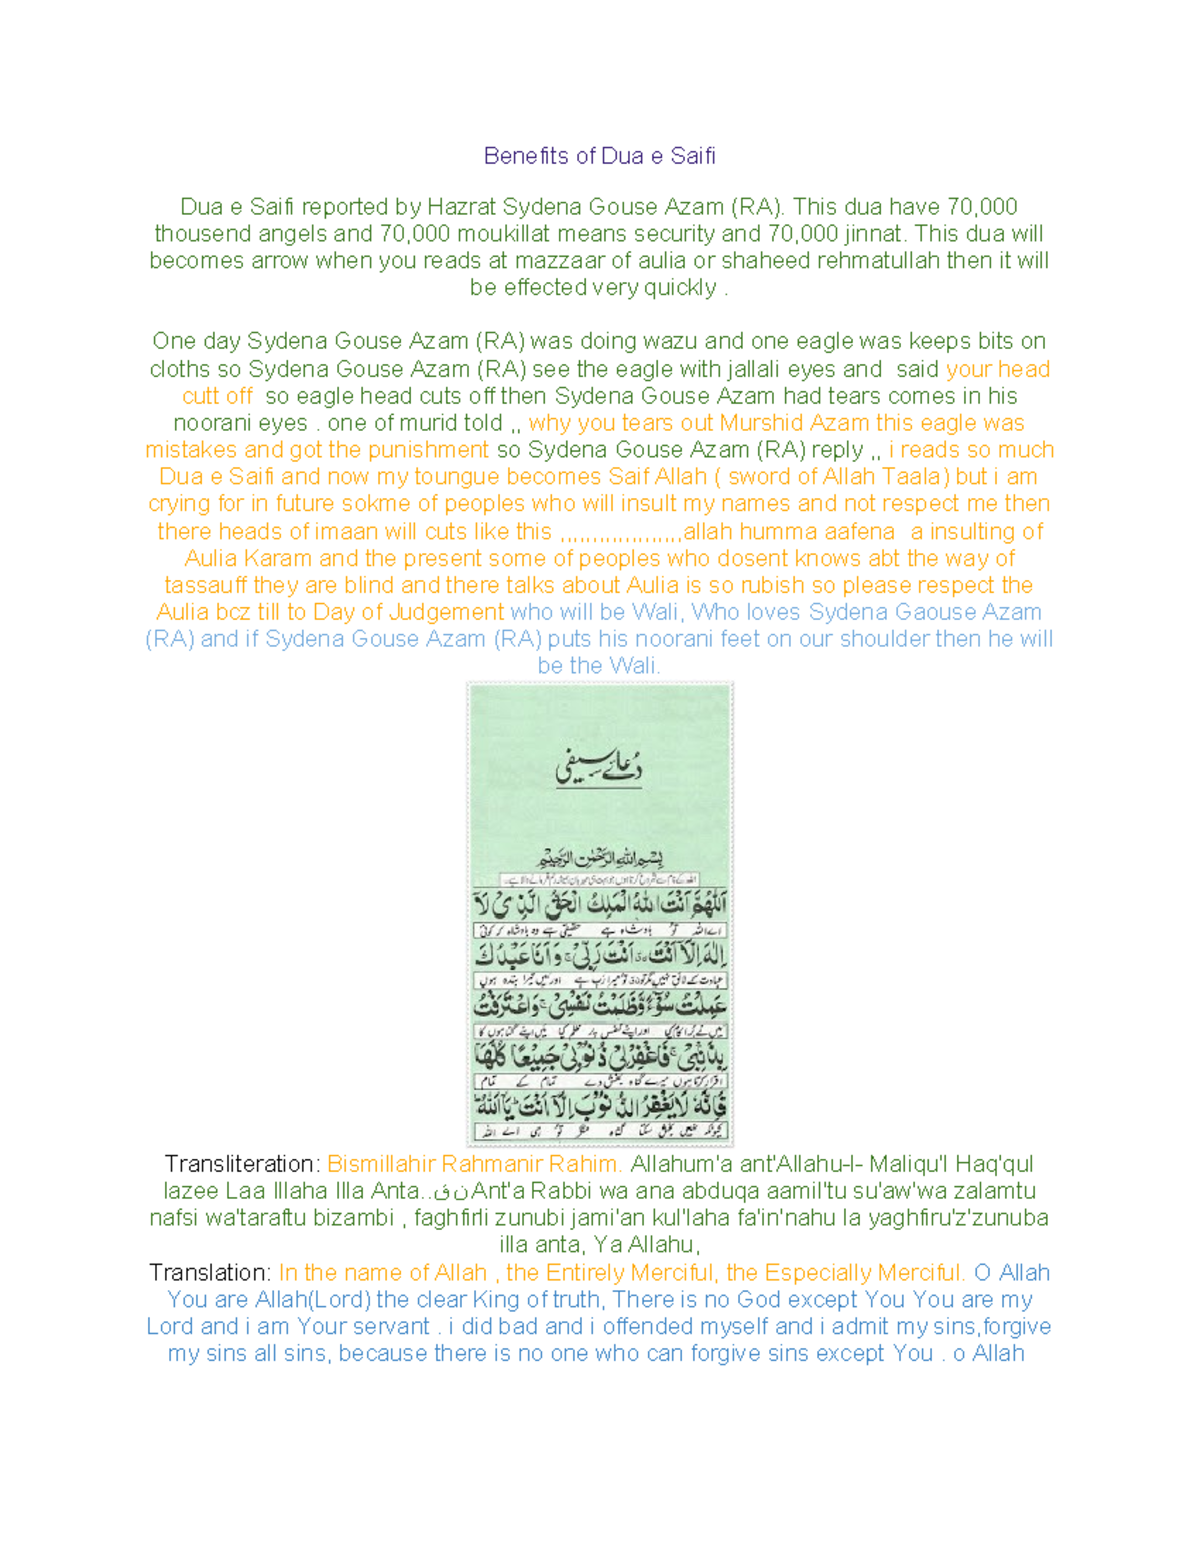 Benefits of Dua e Saifi
Dua e Saifi reported by Hazrat Sydena Gouse Azam (RA). This dua have 70,000
thousend angels and 70,000 moukillat means security and 70,000 jinnat. This dua will
becomes arrow when you reads at mazzaar of aulia or shaheed rehmatullah then it will
be effected very quickly .
One day Sydena Gouse Azam (RA) was doing wazu and one eagle was keeps bits on
cloths so Sydena Gouse Azam (RA) see the eagle with jallali eyes and  said your head
cutt off  so eagle head cuts off then Sydena Gouse Azam had tears comes in his
noorani eyes . one of murid told ,, why you tears out Murshid Azam this eagle was
mistakes and got the punishment so Sydena Gouse Azam (RA) reply ,, i reads so much
Dua e Saifi and now my toungue becomes Saif Allah ( sword of Allah Taala) but i am
crying for in future sokme of peoples who will insult my names and not respect me then
there heads of imaan will cuts like this ,,,,,,,,,,,,,,,,,,,allah humma aafena  a insulting of
Aulia Karam and the present some of peoples who dosent knows abt the way of
tassauff they are blind and there talks about Aulia is so rubish so please respect the
Aulia bcz till to Day of Judgement who will be Wali, Who loves Sydena Gaouse Azam
(RA) and if Sydena Gouse Azam (RA) puts his noorani feet on our shoulder then he will
be the Wali.
دُعائے سیفی
بِسْمِ اللهِ الرَّحْمٰنِ الرَّحِيْمِ
اَللّٰهُمَّ اَنْتَ اللهُ الْمَلِكُ الْحَقُّ الَّذِىْ لَآ
اے اللہ تو بادشاہ ہے حقیقی ہے وہ بادشاہ کہ کوئی
اِلٰهَ اِلَّآ اَنْتَ اَنْتَ رَبِّىْ وَ اَنَا عَبْدُكَ
عبادت کے لائق نہیں مگر تو تو میرا رب ہے اور میں تیرا بندہ ہوں
عَمِلْتُ سُوْٓءً وَّظَلَمْتُ نَفْسِىْ وَاعْتَرَفْتُ
میں نے برا کام کیا اور اپنے نفس پر ظلم کیا میں اپنے گناہوں کا
بِذَنْبِىْ فَاغْفِرْلِىْ ذُنُوْبِىْ جَمِيْعًا كُلَّهَا
اقرار کرتا ہوں میرے گناہ بخش دے تمام کے تمام
فَاِنَّهٗ لَا يَغْفِرُ الذُّنُوْبَ اِلَّآ اَنْتَ يَآ اَللهُ
کیونکہ نہیں بخش سکتا گناہ مگر تو ہی اے اللہ
Transliteration: Bismillahir Rahmanir Rahim. Allahum'a ant'Allahu-l- Maliqu'l Haq'qul
lazee Laa Illaha Illa Anta..ن ق Ant'a Rabbi wa ana abduqa aamil'tu su'aw'wa zalamtu
nafsi wa'taraftu bizambi , faghfirli zunubi jami'an kul'laha fa'in'nahu la yaghfiru'z'zunuba
illa anta, Ya Allahu,
Translation: In the name of Allah , the Entirely Merciful, the Especially Merciful. O Allah
You are Allah(Lord) the clear King of truth, There is no God except You You are my
Lord and i am Your servant . i did bad and i offended myself and i admit my sins,forgive
my sins all sins, because there is no one who can forgive sins except You . o Allah